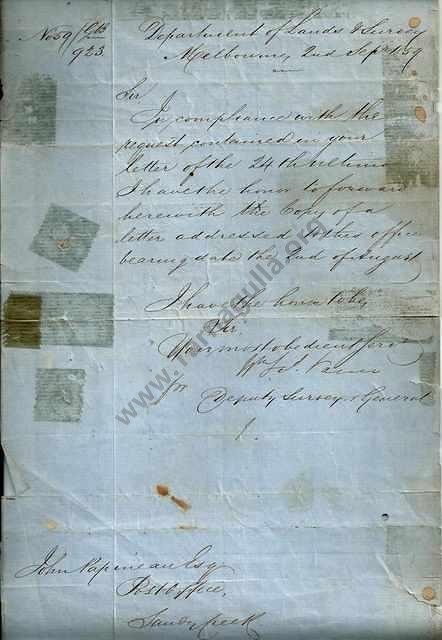 No 59/
923.
Department of Lands & Survey
Melbourne, 2nd Sept. 1859
Sir
In compliance with the
request contained in your
letter of the 24th ultimo
I have the honor to forward
herewith the Copy of a
letter addressed to this office
bearing date the 2nd of August
I have the honor to be,
Sir,
Your most obedient Serv
for
Deputy Surveyor General
John Papineau Esq
Post Office,
Sandy Creek